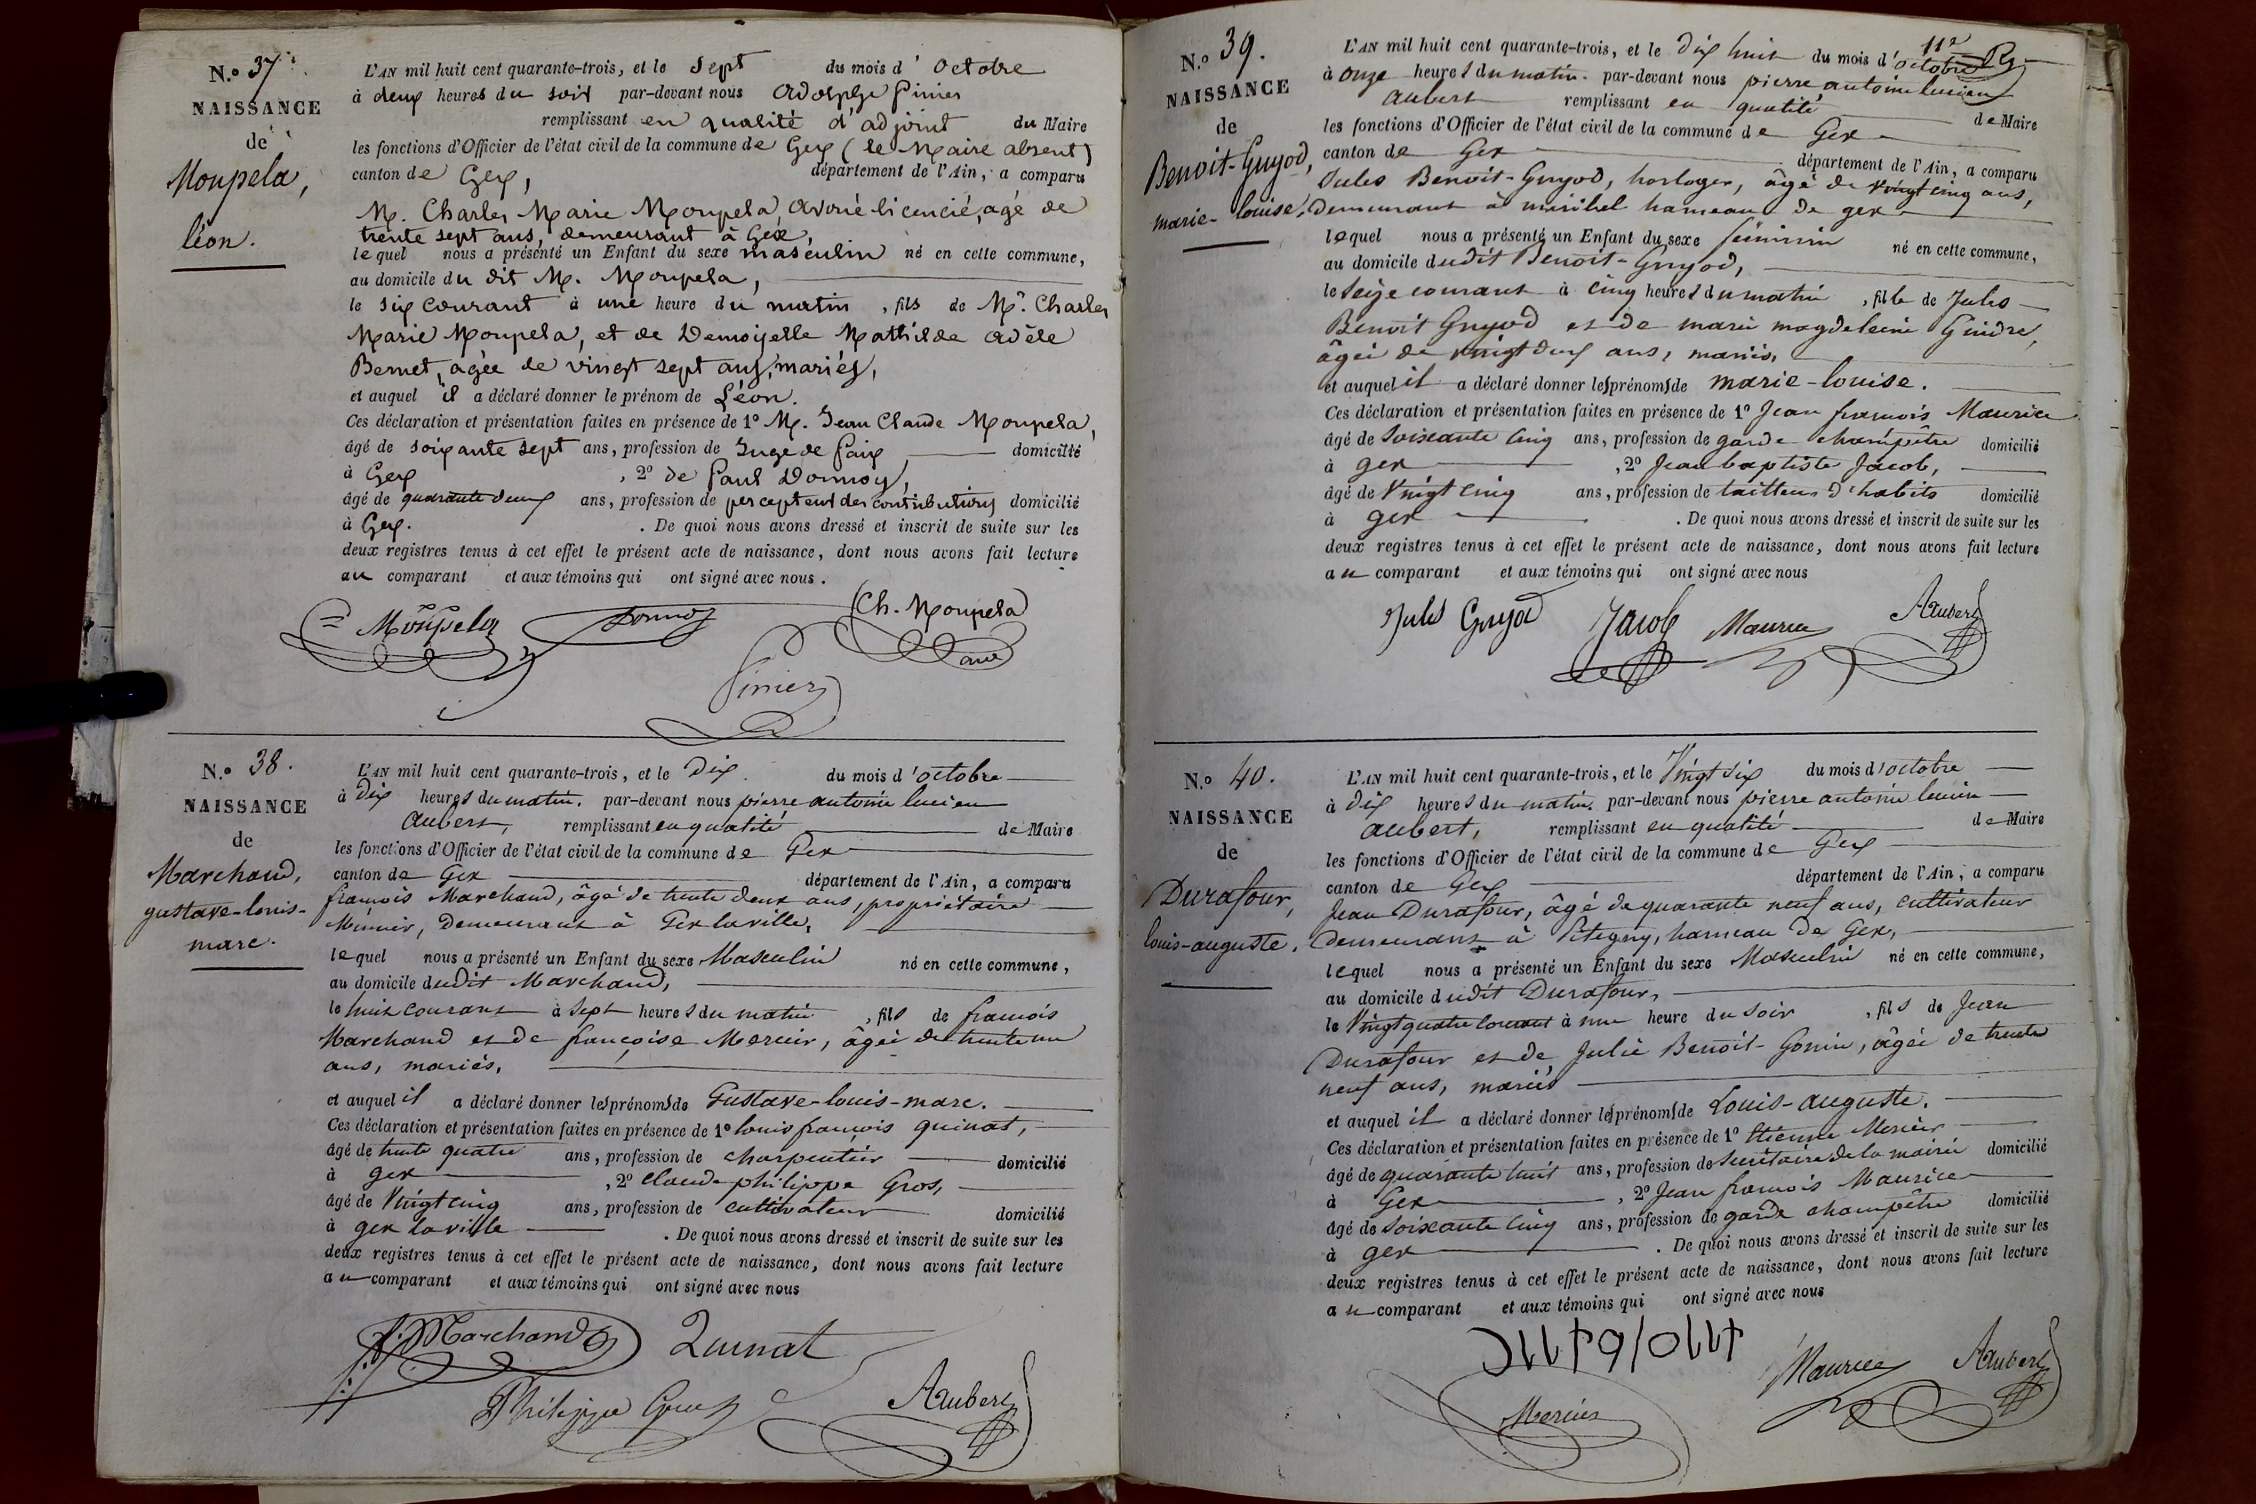 N.° 37.
NAISSANCE
de
Moupela,
léon.
L'AN mil huit cent quarante-trois, et le sept du mois d' octobre
à deux heures du soir par-devant nous Adolphe Pinier
remplissant en qualité d'adjoint du Maire
les fonctions d'Officier de l'état civil de la commune de Gex (le Maire absent)
canton de Gex, département de l'Ain, a comparu
M. Charles Marie Moupela, avoué licencié, agé de
trente sept ans, demeurant à Gex,
lequel nous a présenté un Enfant du sexe masculin né en cette commune,
au domicile du dit M. Moupela,
le six courant à une heure du matin, fils de Mr. Charles
Marie Moupela, et de Demoiselle Mathilde Adèle
Bernet, agée de vingt sept ans, mariés,
et auquel il a déclaré donner le prénom de Léon.
Ces déclaration et présentation faites en présence de 1° M. Jean Claude Moupela,
âgé de soixante sept ans, profession de Juge de Paix domicilié
à Gex, 2° de Paul Donnoy,
âgé de quarante deux ans, profession de percepteur des contributions domicilié
à Gex. De quoi nous avons dressé et inscrit de suite sur les
deux registres tenus à cet effet le présent acte de naissance, dont nous avons fait lecture
au comparant et aux témoins qui ont signé avec nous.
Moupela Donnoy Ch. Moupela
avoué
Pinier
N.° 38.
NAISSANCE
de
Marchand,
gustave-louis-
marc.
L'AN mil huit cent quarante-trois, et le dix du mois d'octobre
à dix heures du matin. par-devant nous pierre antoine lucien
aubert, remplissant en qualité de Maire
les fonctions d'Officier de l'état civil de la commune de Gex
canton de Gex département de l'Ain, a comparu
françois Marchand, âgé de trente deux ans, propriétaire
Meunier, Demeurant à Gex la ville,
lequel nous a présenté un Enfant du sexe Masculin né en cette commune,
au domicile dudit Marchand,
le huit courant à sept heures du matin, fils de françois
Marchand et de françoise Mercier, âgée de trente un
ans, mariés,
et auquel il a déclaré donner les prénoms de Gustave-louis-marc.
Ces déclaration et présentation faites en présence de 1° louis françois quinat,
âgé de trente quatre ans, profession de charpentier domicilié
à gex, 2° claude philippe Gros,
âgé de Vingt cinq ans, profession de cultivateur domicilié
à gex la ville. De quoi nous avons dressé et inscrit de suite sur les
deux registres tenus à cet effet le présent acte de naissance, dont nous avons fait lecture
au comparant et aux témoins qui ont signé avec nous
f. Marchand Quinat
Philippe Gros Aubert
N.° 39.
NAISSANCE
de
Benoit-Guyod,
marie-louise.
L'AN mil huit cent quarante-trois, et le dix huit du mois d'octobre
à onze heures du matin. par-devant nous pierre antoine lucien
aubert remplissant en qualité de Maire
les fonctions d'Officier de l'état civil de la commune de Gex
canton de Gex département de l'Ain, a comparu
Jules Benoit-Guyod, horloger, âgé de vingt cinq ans,
Demeurant à hameau de gex
lequel nous a présenté un Enfant du sexe féminin né en cette commune,
au domicile dudit Benoit-Guyod,
le seize courant à cinq heures du matin, fille de Jules
Benoit Guyod et de marie magdeleine Gindre,
âgée de vingt deux ans, mariés,
et auquel il a déclaré donner les prénoms de marie-louise.
Ces déclaration et présentation faites en présence de 1° Jean françois Maurice
âgé de soixante cinq ans, profession de garde champêtre domicilié
à gex, 2° Jean baptiste Jacob,
âgé de Vingt cinq ans, profession de tailleur d'habits domicilié
à gex. De quoi nous avons dressé et inscrit de suite sur les
deux registres tenus à cet effet le présent acte de naissance, dont nous avons fait lecture
au comparant et aux témoins qui ont signé avec nous
Jules Guyod Jacob Maurice Aubert
N.° 40.
NAISSANCE
de
Durafour,
louis-auguste.
L'AN mil huit cent quarante-trois, et le Vingt six du mois d'octobre
à dix heures du matin. par-devant nous pierre antoine lucien
aubert, remplissant en qualité de Maire
les fonctions d'Officier de l'état civil de la commune de Gex
canton de Gex département de l'Ain, a comparu
Jean Durafour, âgé de quarante neuf ans, cultivateur
Demeurant à Pitegny, hameau de Gex,
lequel nous a présenté un Enfant du sexe Masculin né en cette commune,
au domicile dudit Durafour,
le Vingt quatre courant à une heure du soir, fils de Jean
Durafour et de Julie Benoit-Gonin, âgée de trente
neuf ans, mariés
et auquel il a déclaré donner les prénoms de Louis-auguste.
Ces déclaration et présentation faites en présence de 1° Etienne Mercier
âgé de quarante huit ans, profession de Secrétaire de la mairie domicilié
à Gex, 2° Jean françois Maurice
âgé de soixante cinq ans, profession de garde champêtre domicilié
à gex. De quoi nous avons dressé et inscrit de suite sur les
deux registres tenus à cet effet le présent acte de naissance, dont nous avons fait lecture
au comparant et aux témoins qui ont signé avec nous
Maurice Aubert
Mercier